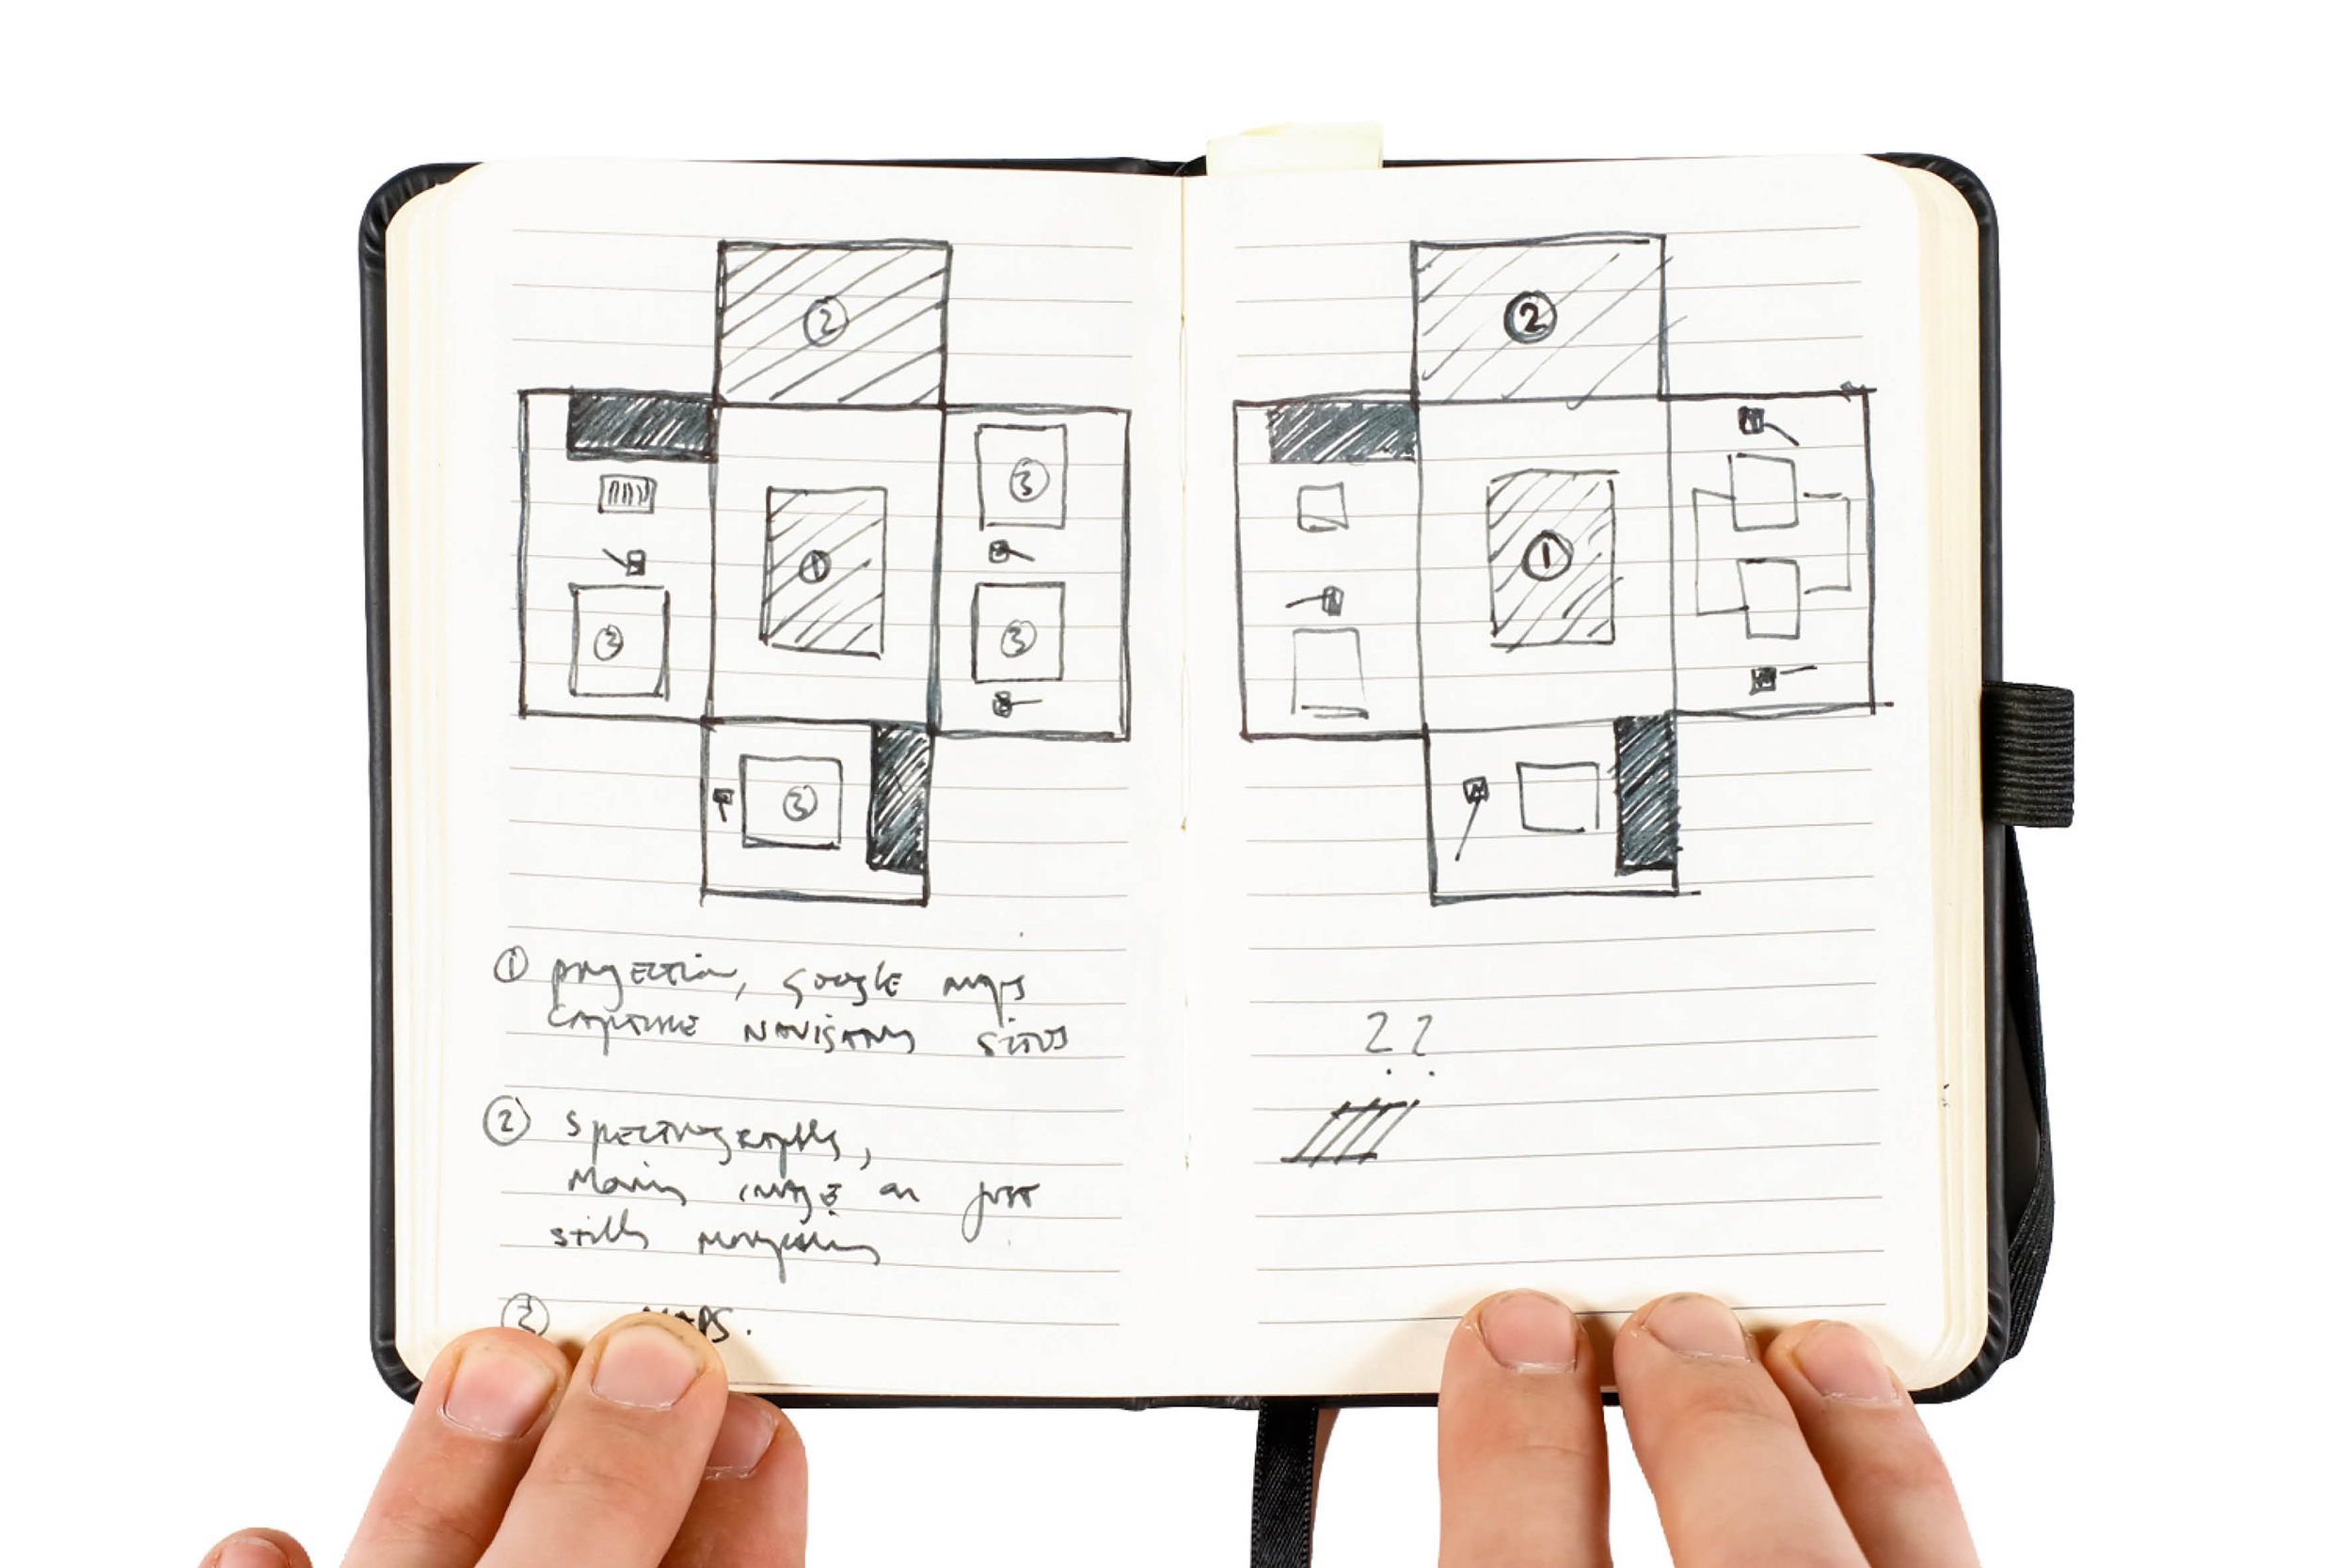 ②
③
①
③
③
③
① projection, google maps
capture navigating sites
② spectrographs,
moving image or just
stills morphing
③ MAPS.
②
①
??